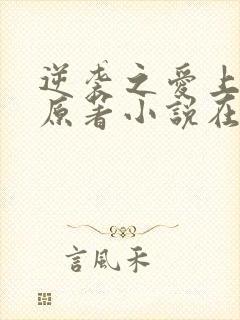 逆袭之爱上
原著小說在
言風禾